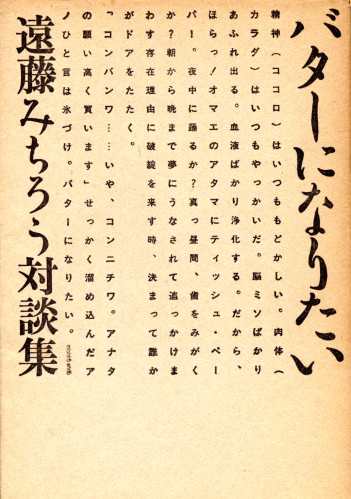 バターになりたい
精神(ココロ)はいつももどかしい。肉体(
カラダ)はいつもやっかいだ。脳ミソばかり
あふれ出る。血液ばかり浄化する。だから、
ほらっ!オマエのアタマにティッシュ・ペー
パー。夜中に踊るか?真っ昼間、歯をみがく
か?朝から晩まで夢にうなされて追っかけま
わす存在理由に破綻を来す時、決まって誰か
がドアをたたく。
「コンバンワ……いや、コンニチワ。アナタ
の願い高く買います」せっかく溜め込んだア
ノひと言は氷づけ。バターになりたい。
遠藤みちろう対談集